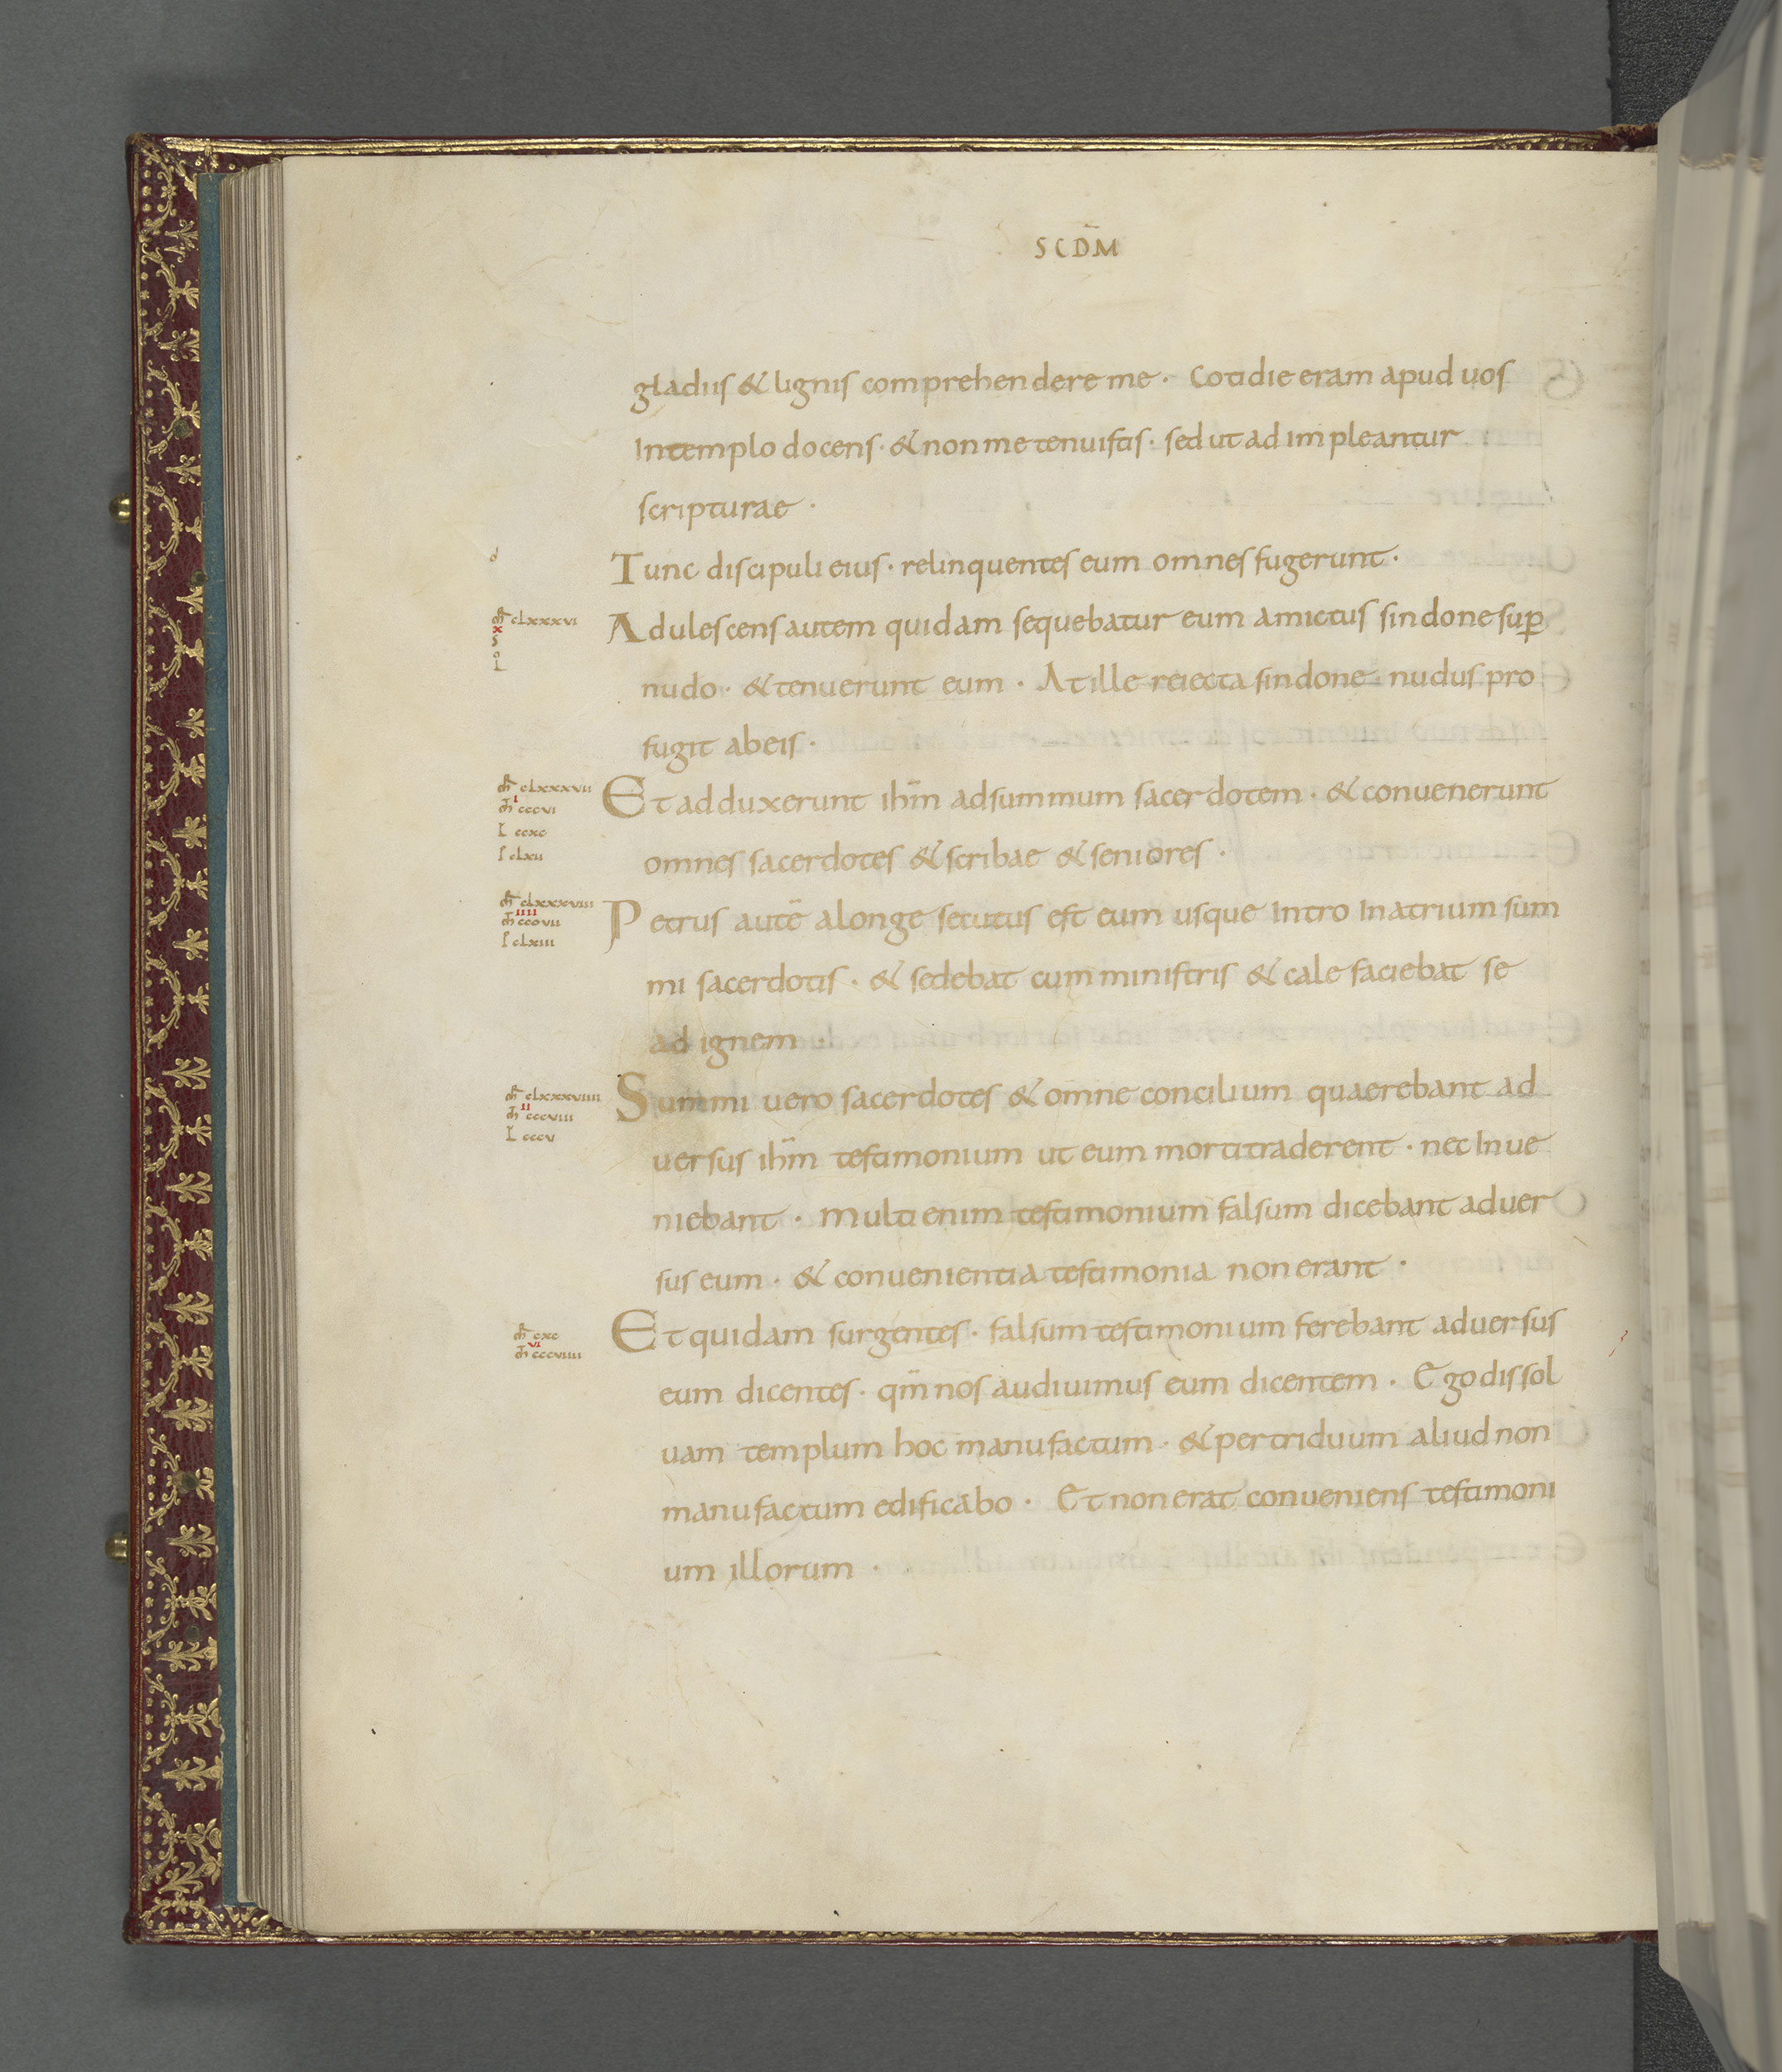 SCD̄M
gladiis & lignis comprehendere me · Cotidie eram apud uos
In templo docens · & non me tenuistis · sed ut adimpleantur
scripturae ·
d
Tunc discipuli eius · relinquentes eum omnes fugerunt ·
m̄r clxxxvi
x
s
o
L
Adulescens autem quidam sequebatur eum amictus sindone sup̱
nudo · & tenuerunt eum · At ille reiecta sindone · nudus pro
fugit abeis ·
m̄r clxxxvii
i
m̄ cccvi
L ccxc
I clxii
Et adduxerunt ihm̄ adsummum sacerdotem · & conuenerunt
omnes sacerdotes & scribae & seniores ·
m̄r clxxxviii
iiii
m̄ cccvii
I clxiii
Petrus autē alonge secutus est eum usque Intro Inatrium sum
mi sacerdotis · & sedebat cum ministris & calefaciebat se
ad ignem ·
m̄r clxxxviiii
ii
m̄ cccviii
L cccv
Summi uero sacerdotes & omne concilium quaerebant ad
uersus ihm̄ testimonium ut eum morti traderent · nec Inue
niebant · Multi enim testimonium falsum dicebant aduer
sus eum · & conuenientia testimonia non erant ·
m̄r cxc
vi
m̄ cccviiii
Et quidam surgentes · falsum testimonium ferebant aduersus
eum dicentes · qm̄ nos audiuimus eum dicentem · Ego dissol
uam templum hoc manufactum · & per triduum aliud non
manufactum edificabo · Et non erat conueniens testimoni
um illorum ·